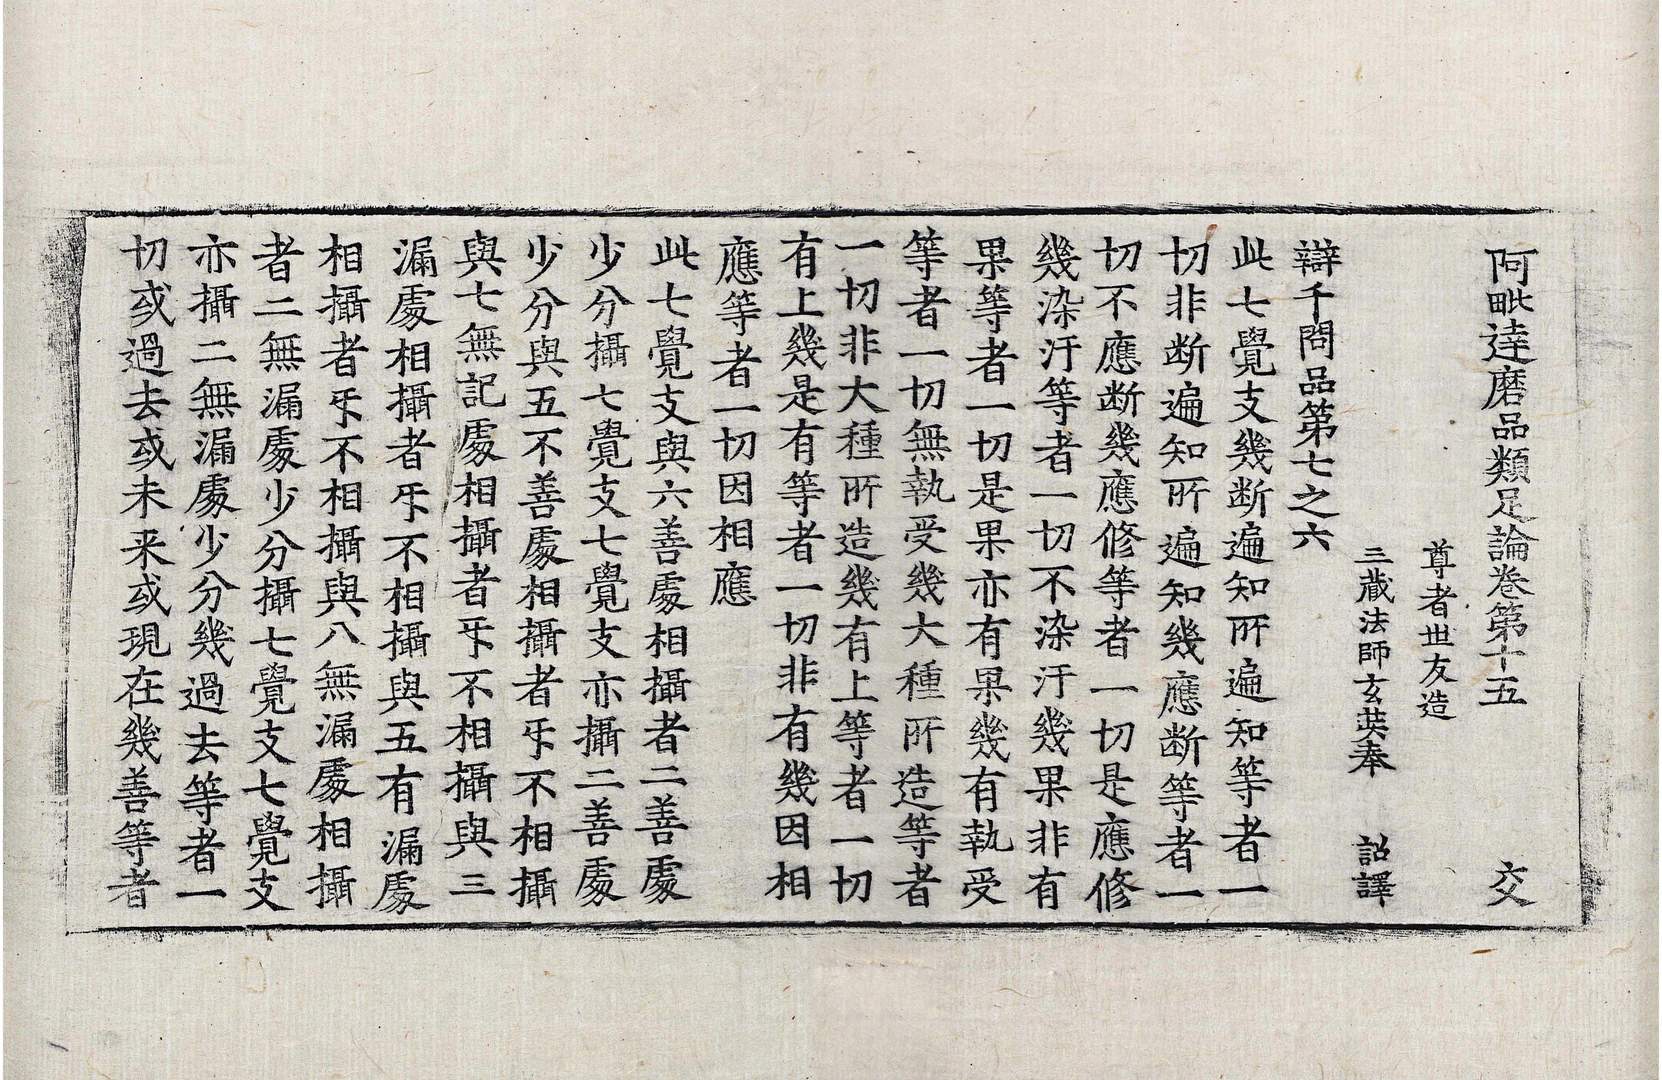 阿毗達磨品類足論卷第十五 交
尊者世友造
三藏法師玄奘奉 詔譯
辯千問品第七之六
此七覺支幾断遍知所遍知等者一
切非断遍知所遍知幾應断等者一
切不應断幾應修等者一切是應修
幾染汙等者一切不染汙幾果非有
果等者一切是果亦有果幾有執受
等者一切無執受幾大種所造等者
一切非大種所造幾有上等者一切
有上幾是有等者一切非有幾因相
應等者一切因相應
此七覺支與六善處相攝者二善處
少分攝七覺支七覺支亦攝二善處
少分與五不善處相攝者㸦不相攝
與七無記處相攝者㸦不相攝與三
漏處相攝者㸦不相攝與五有漏處
相攝者㸦不相攝與八無漏處相攝
者二無漏處少分攝七覺支七覺支
亦攝二無漏處少分幾過去等者一
切或過去或未来或現在幾善等者